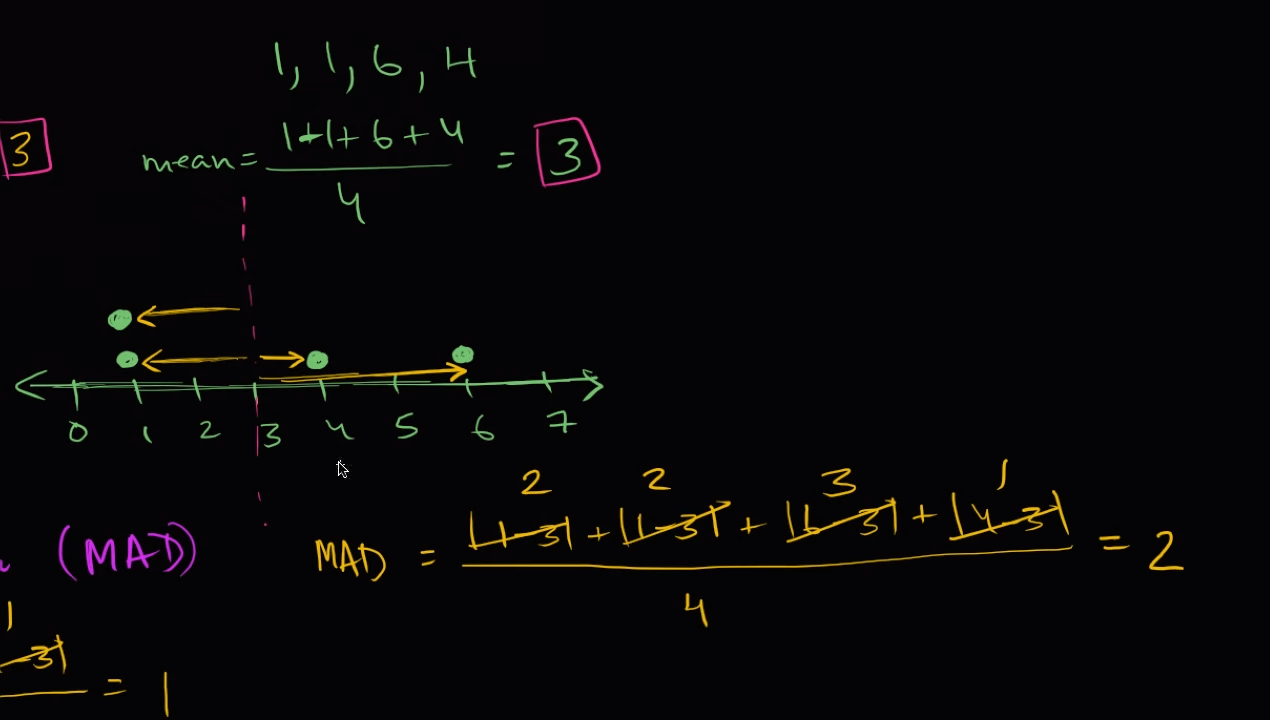 1, 1, 6, 4
3
mean = 1+1+6+4 / 4 = 3
0 1 2 3 4 5 6 7
2 2 3 1
(MAD)
MAD = |1-3| + |1-3| + |6-3| + |4-3| / 4 = 2
1
-3| = 1